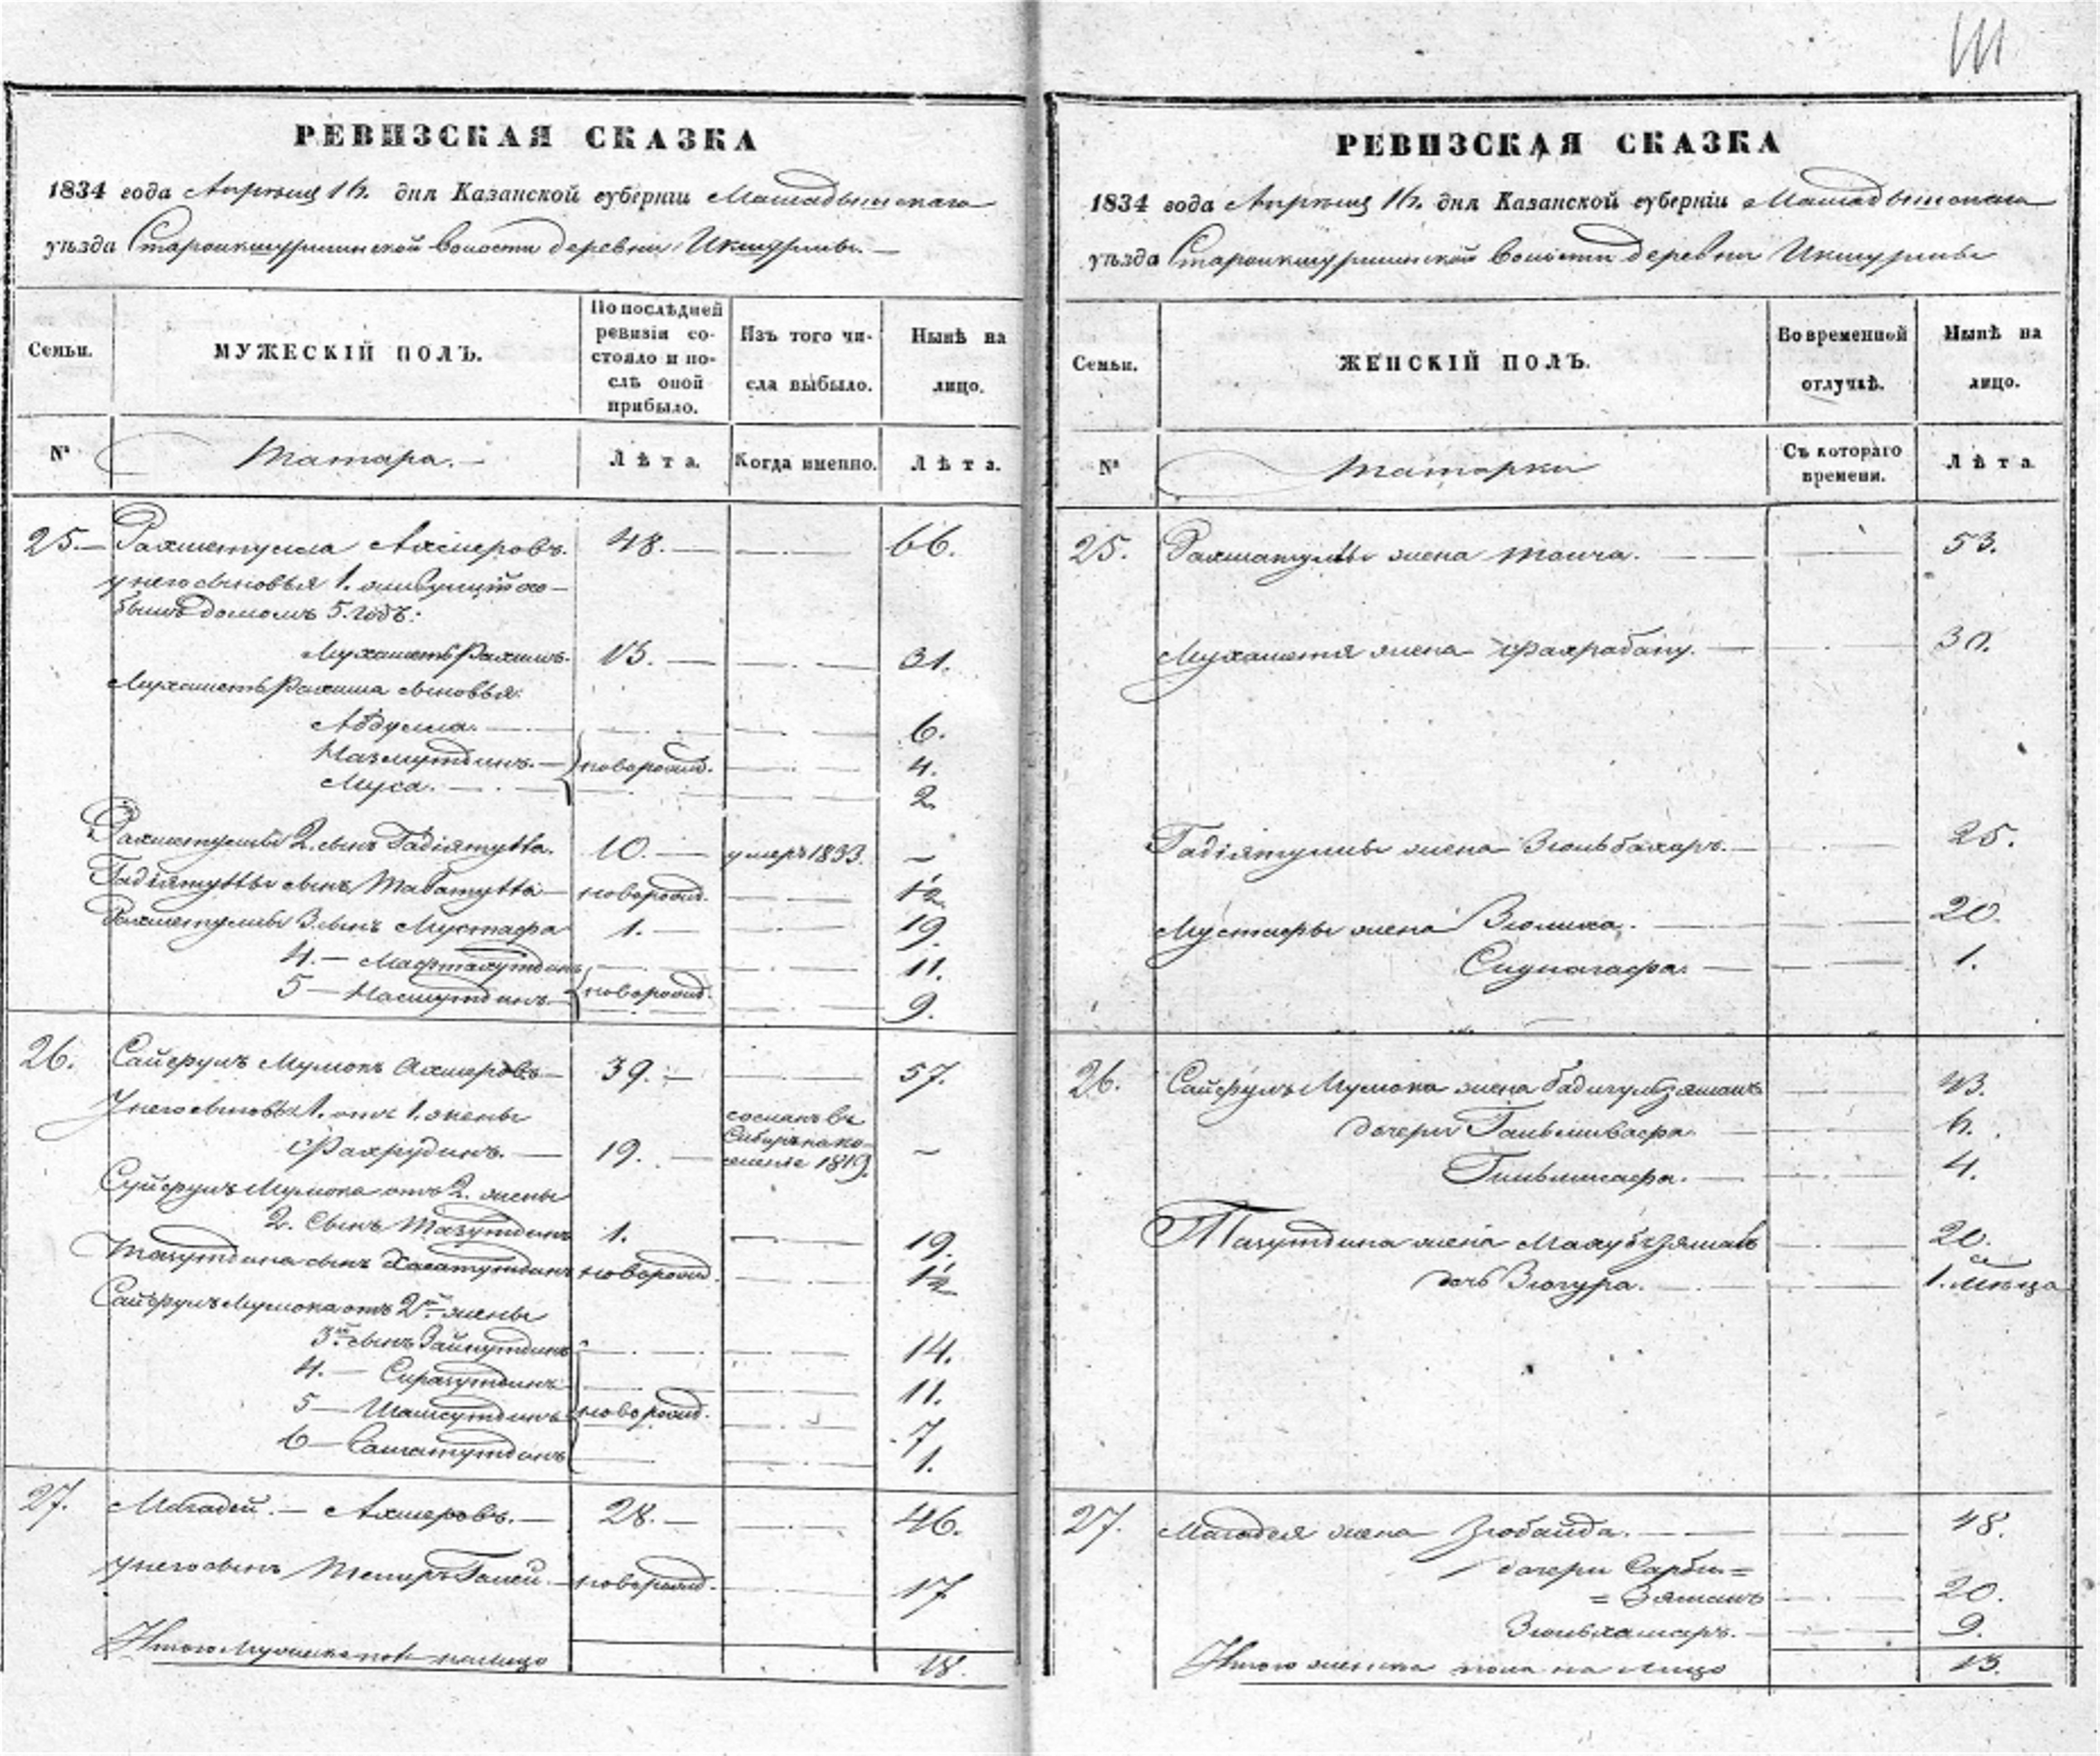 РЕВИЗСКАЯ СКАЗКА
1834 года Апреля 16. дня Казанской губерніи Мамадышскаго
уѣзда Староикшурминской волости деревни Икшурмы.
Семьи.
МУЖЕСКІЙ ПОЛЪ.
По послѣдней ревизіи состояло и послѣ оной прибыло.
Изъ того числа выбыло.
Нынѣ на лицо.
№
Татара.
Лѣта.
Когда именно.
Лѣта.
25. Рахметулла Ахмеровъ. 48. 66.
у него сыновья 1. живущій со-
бымъ домомъ 5. годъ:
Мухаметъ Рахимъ. 13. 31.
Мухаметъ Рахима сыновья:
Абдулла. 6.
Назмутдинъ. новорожд. 4.
Муса. 2.
Рахметуллы 2. сынъ Гадіятулла. 10. умеръ 1833.
Гадіятуллы сынъ новорожд. 1/2
Рахметуллы 3. сынъ Мустафа 1. 19.
4. Мафтахутдинъ 11.
5 Насмутдинъ новорожд. 9.
26. Сайфулъ Мумонъ Ахмеровъ 39. 57.
У него сыновья 1. отъ 1. жены
Фахрудинъ. 19. сосланъ въ Сибирь на поселеніе 1819.
Сайфулъ Мумона отъ 2. жены
2. сынъ Тазутдинъ 1. 19.
Тазутдина сынъ новорожд. 1/2
Сайфулъ Мумона отъ 2й жены
3й сынъ Зайнутдинъ 14.
4. Сиразутдинъ 11.
5 Шамсутдинъ новорожд. 7
6 1.
27. Магадей. Ахмеровъ. 28. 46.
У него сынъ Темиръ Галей. новорожд. 17
Итого мужеска пола на лицо 18.
РЕВИЗСКАЯ СКАЗКА
1834 года Апреля 16. дня Казанской губерніи Мамадышскаго
уѣзда Староикшурминской волости деревни Икшурмы
Семьи.
ЖЕНСКІЙ ПОЛЪ.
Во временной отлучкѣ.
Нынѣ на лицо.
№
Татарки
Съ котораго времени.
Лѣта
25. Рахматуллы жена Таича. 53.
Мухаметя жена Фахрабану. 30.
Гадіятуллы жена Зюльбахаръ. 25.
Мустафы жена Зюлиха. 20.
1.
26. Сайфулъ Мумона жена 43.
дочери 6.
4.
Тазутдина жена Махубъзямалъ 20.
дочь Зюгура. 1. мѣсяца
27. Магадея жена Зюбаида. 48.
дочери Сарби=
=Зямалъ 20.
Зюльхамаръ. 9.
Итого женска пола на лицо 13.